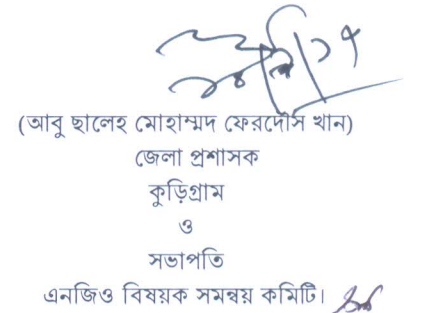 (আবু ছালেহ মোহাম্মদ ফেরদৌস খান)
জেলা প্রশাসক
কুড়িগ্রাম
ও
সভাপতি
এনজিও বিষয়ক সমন্বয় কমিটি।